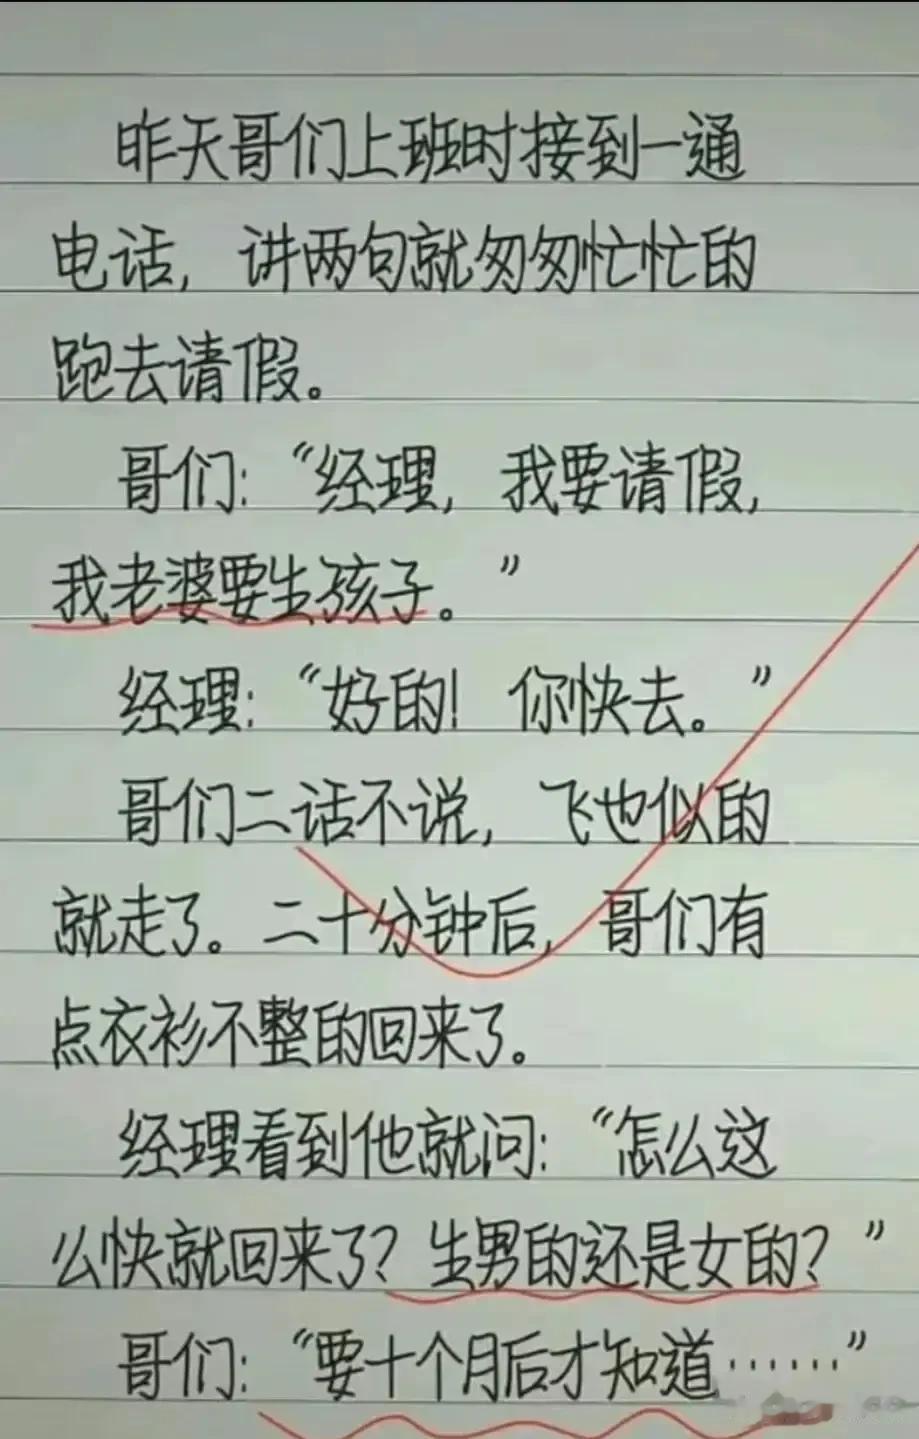 昨天哥们上班时接到一通
电话，讲两句就匆匆忙忙的
跑去请假。
哥们：“经理，我要请假，
我老婆要生孩子。”
经理：“好的！你快去。”
哥们二话不说，飞也似的
就走了。二十分钟后，哥们有
点衣衫不整的回来了。
经理看到他就问：“怎么这
么快就回来了？生男的还是女的？”
哥们：“要十个月后才知道……”